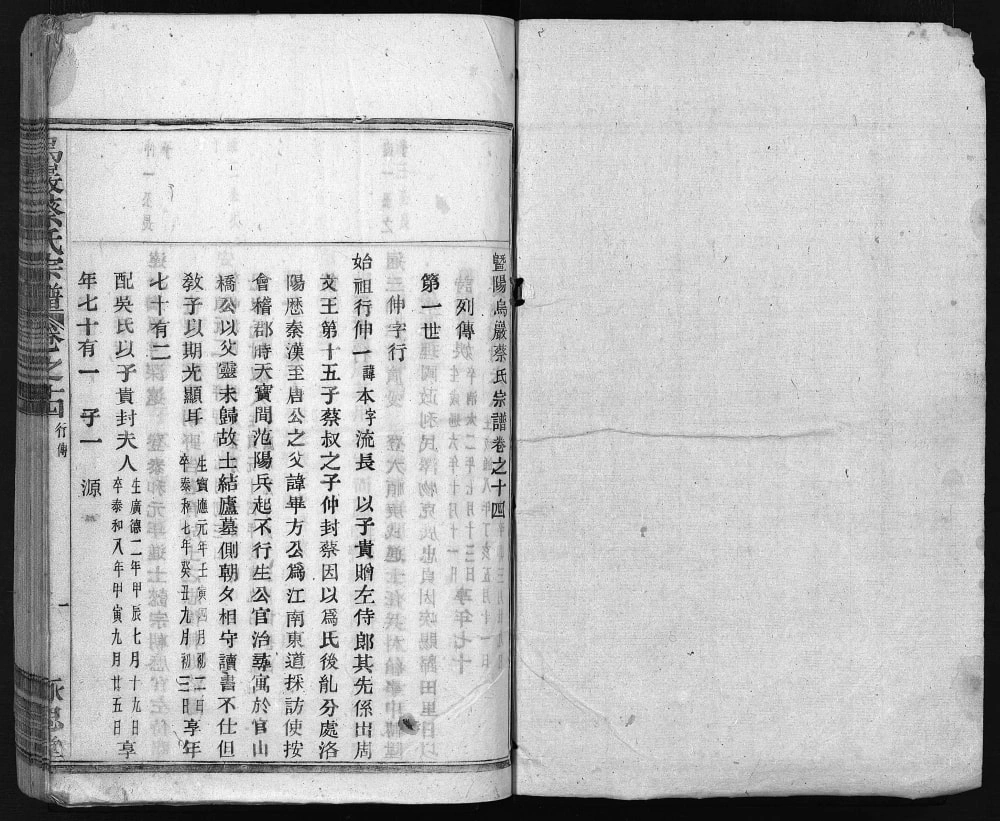 暨陽烏巖蔡氏宗譜卷之十四
列傳
第一世
伸字行
始祖行伸一諱本字流長 以子貴贈左侍郎其先係出周
文王第十五子蔡叔之子仲封蔡因以爲氏後亂分處洛
陽歷秦漢至唐公之父諱畢方公爲江南東道採訪使按
會稽郡時天寶間范陽兵起不行生公官治尋寓於官山
橋公以父靈未歸故土結廬墓側朝夕相守讀書不仕但
敎子以期光顯耳 生寶應元年壬寅四月初二日 卒泰和七年癸丑九月初三日 享年
七十有二
配吳氏以子貴封夫人 生廣德二年甲辰七月十九日 卒泰和八年甲寅九月廿五日 享
年七十有一 子一 源
烏巖蔡氏宗譜 卷之十四 行傳 一 永思堂